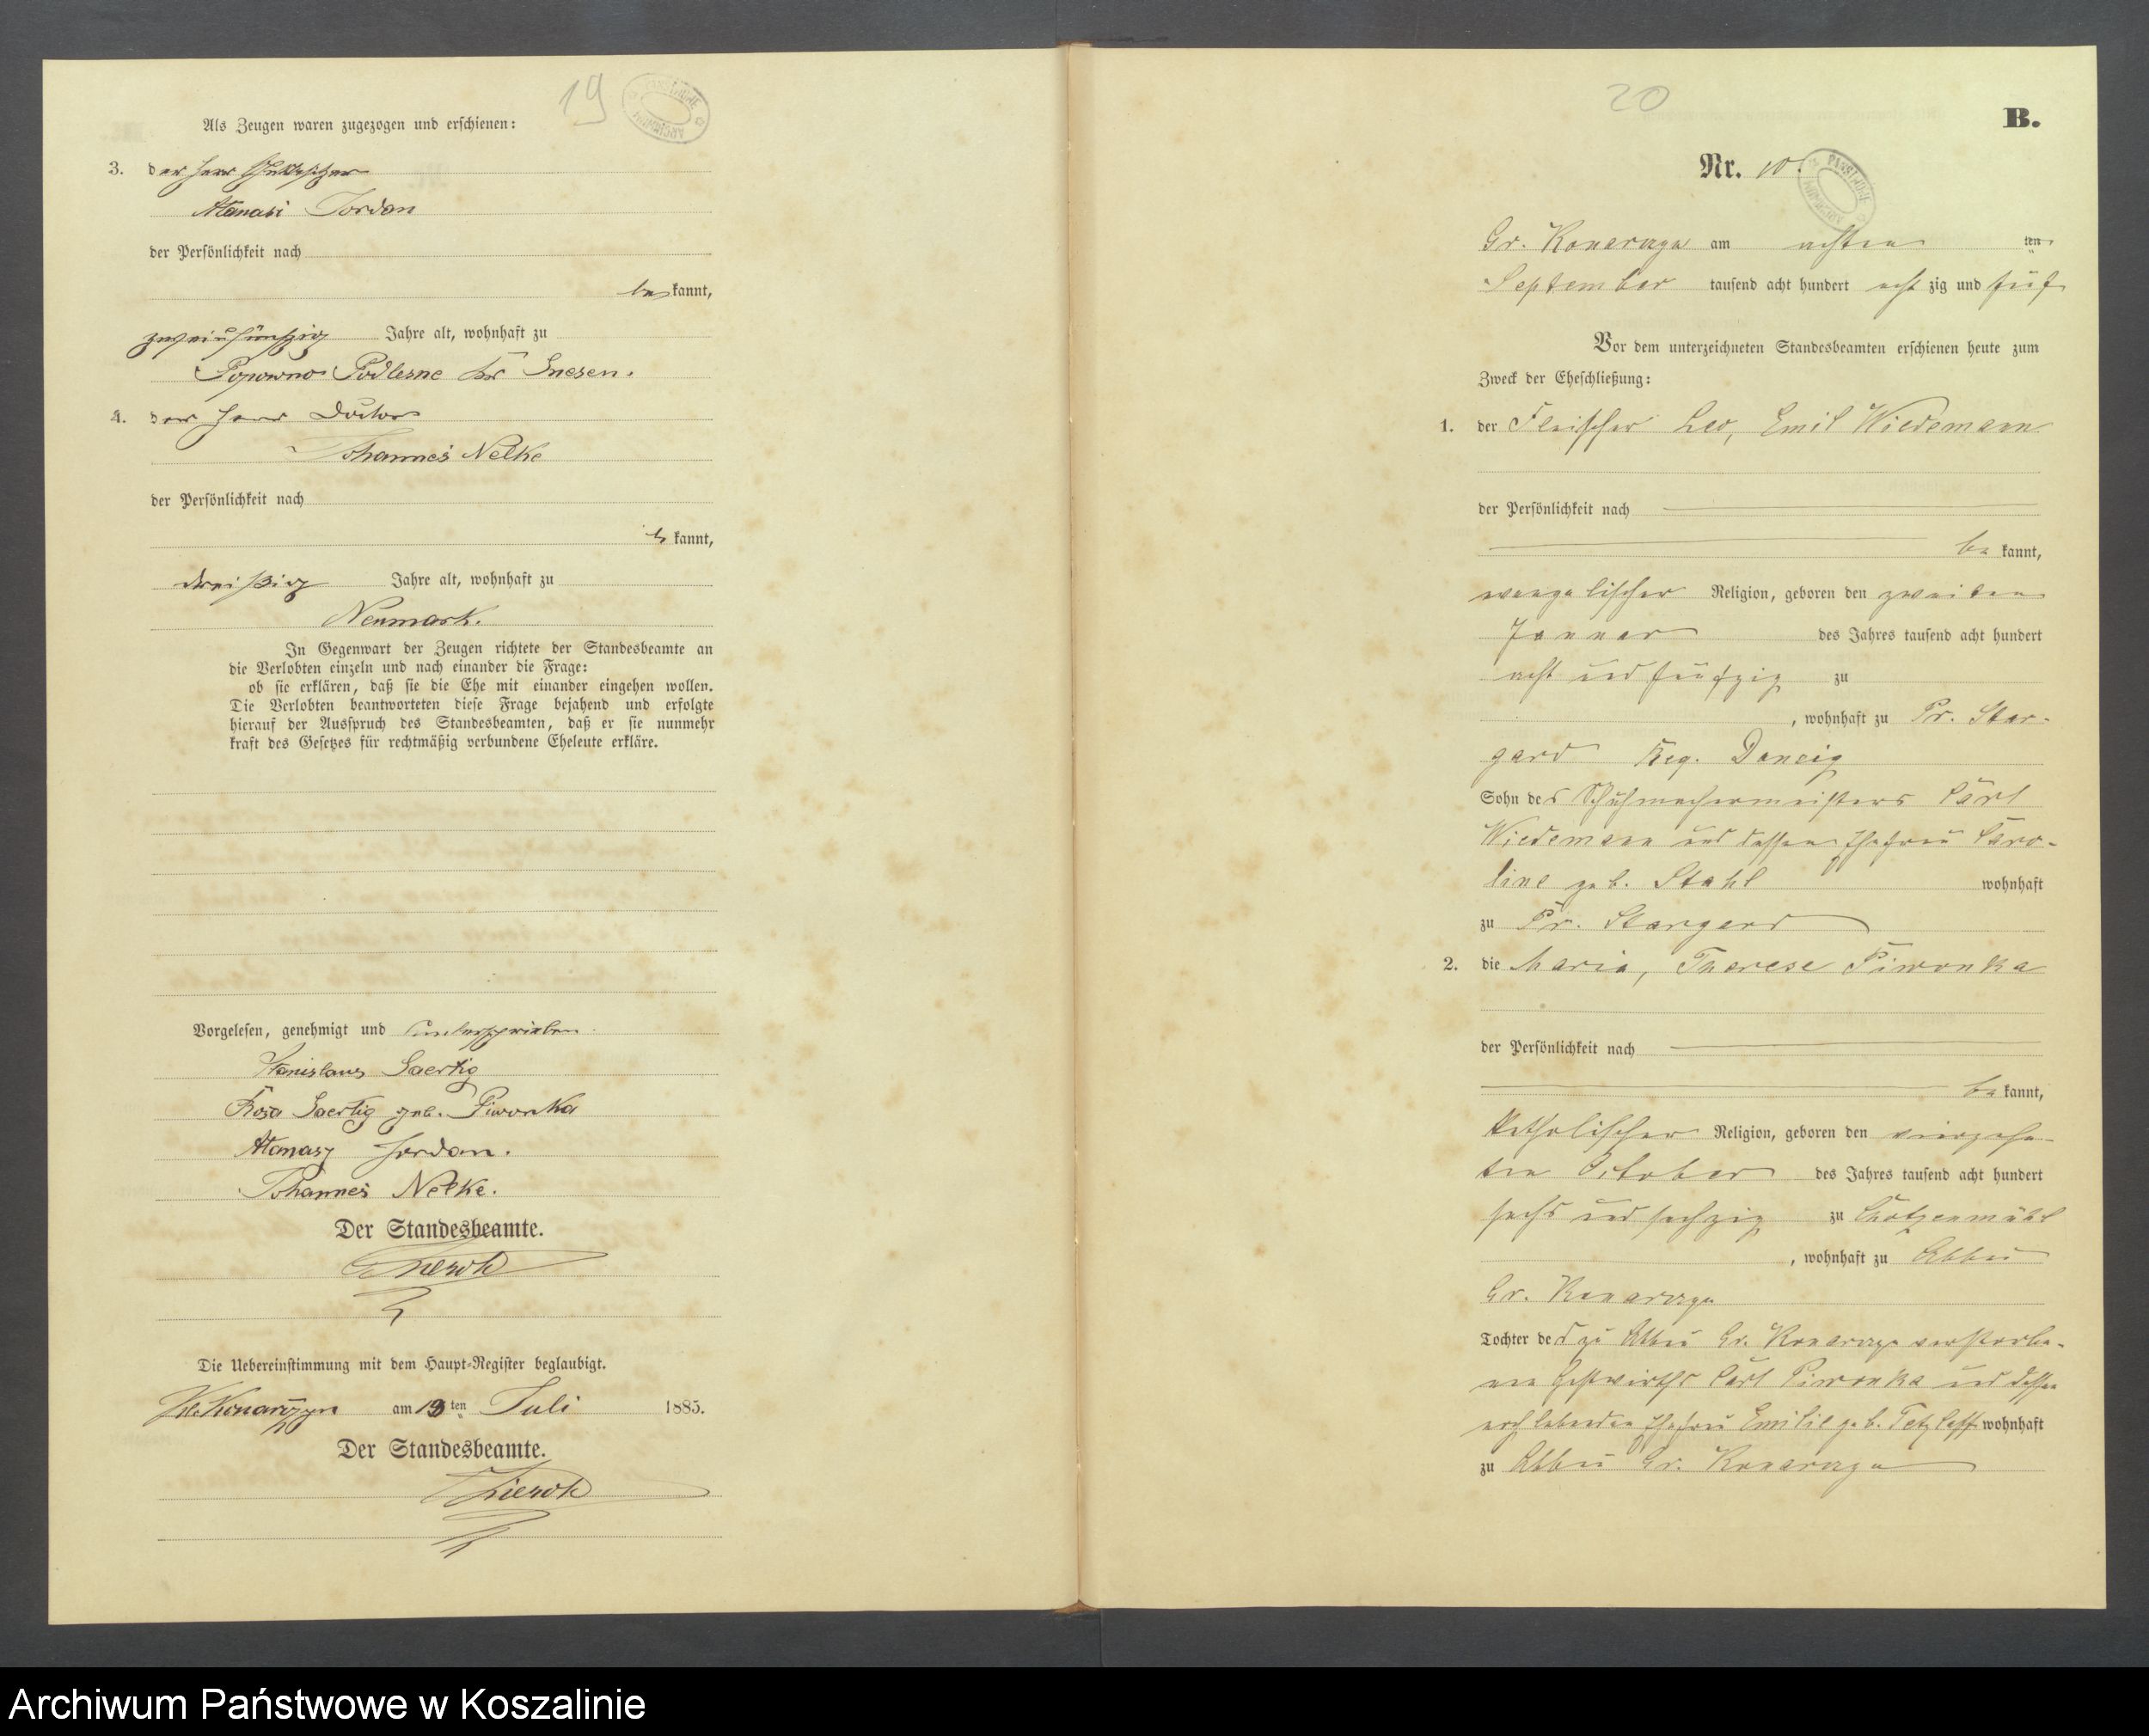 19
Als Zeugen waren zugezogen und erschienen:
3. der Herr
Atanasi Jordan
der Persönlichkeit nach
be kannt,
zweiundfünfzig Jahre alt, wohnhaft zu
Popowno Podlesne bei Gnesen.
4. der Herr Doctor
Johannes Nelke
der Persönlichkeit nach
b kannt,
dreißig Jahre alt, wohnhaft zu
Neumark.
In Gegenwart der Zeugen richtete der Standesbeamte an
die Verlobten einzeln und nach einander die Frage:
ob sie erklären, daß sie die Ehe mit einander eingehen wollen.
Die Verlobten beantworteten diese Frage bejahend und erfolgte
hierauf der Ausspruch des Standesbeamten, daß er sie nunmehr
kraft des Gesetzes für rechtmäßig verbundene Eheleute erkläre.
Vorgelesen, genehmigt und unterschrieben
Stanislaus Gaertig
Rosa Gaertig geb. Piwonka
Atanasy Jordan.
Johannes Nelke.
Der Standesbeamte.
Die Uebereinstimmung mit dem Haupt-Register beglaubigt.
Konarczyn am 13 ten Juli 1885.
Der Standesbeamte.
20
B.
Nr. 10.
Gr. Konarczyn am achten ten
September tausend acht hundert acht zig und fünf
Vor dem unterzeichneten Standesbeamten erschienen heute zum
Zweck der Eheschließung:
1. der Fleischer Leo, Emil Wiedemann
der Persönlichkeit nach
be kannt,
evangelischer Religion, geboren den zweiten
Januar des Jahres tausend acht hundert
acht und fünfzig zu
, wohnhaft zu Pr. Star-
gard Reg. Danzig
Sohn des Schuhmachermeisters Carl
Wiedemann und dessen Ehefrau Caro-
line geb. Stahl wohnhaft
zu Pr. Stargard
2. die Maria, Therese Piwonka
der Persönlichkeit nach
be kannt,
katholischer Religion, geboren den vierzehn-
ten October des Jahres tausend acht hundert
sechs und sechzig zu Chotzenmühl
, wohnhaft zu Abbau
Gr. Konarczyn
Tochter des zu Abbau Gr. Konarczyn verstorbe-
nen Gastwirths Carl Piwonka und dessen
noch lebenden Ehefrau Emilie geb. Tetzlaff wohnhaft
zu Abbau Gr. Konarczyn
Archiwum Państwowe w Koszalinie